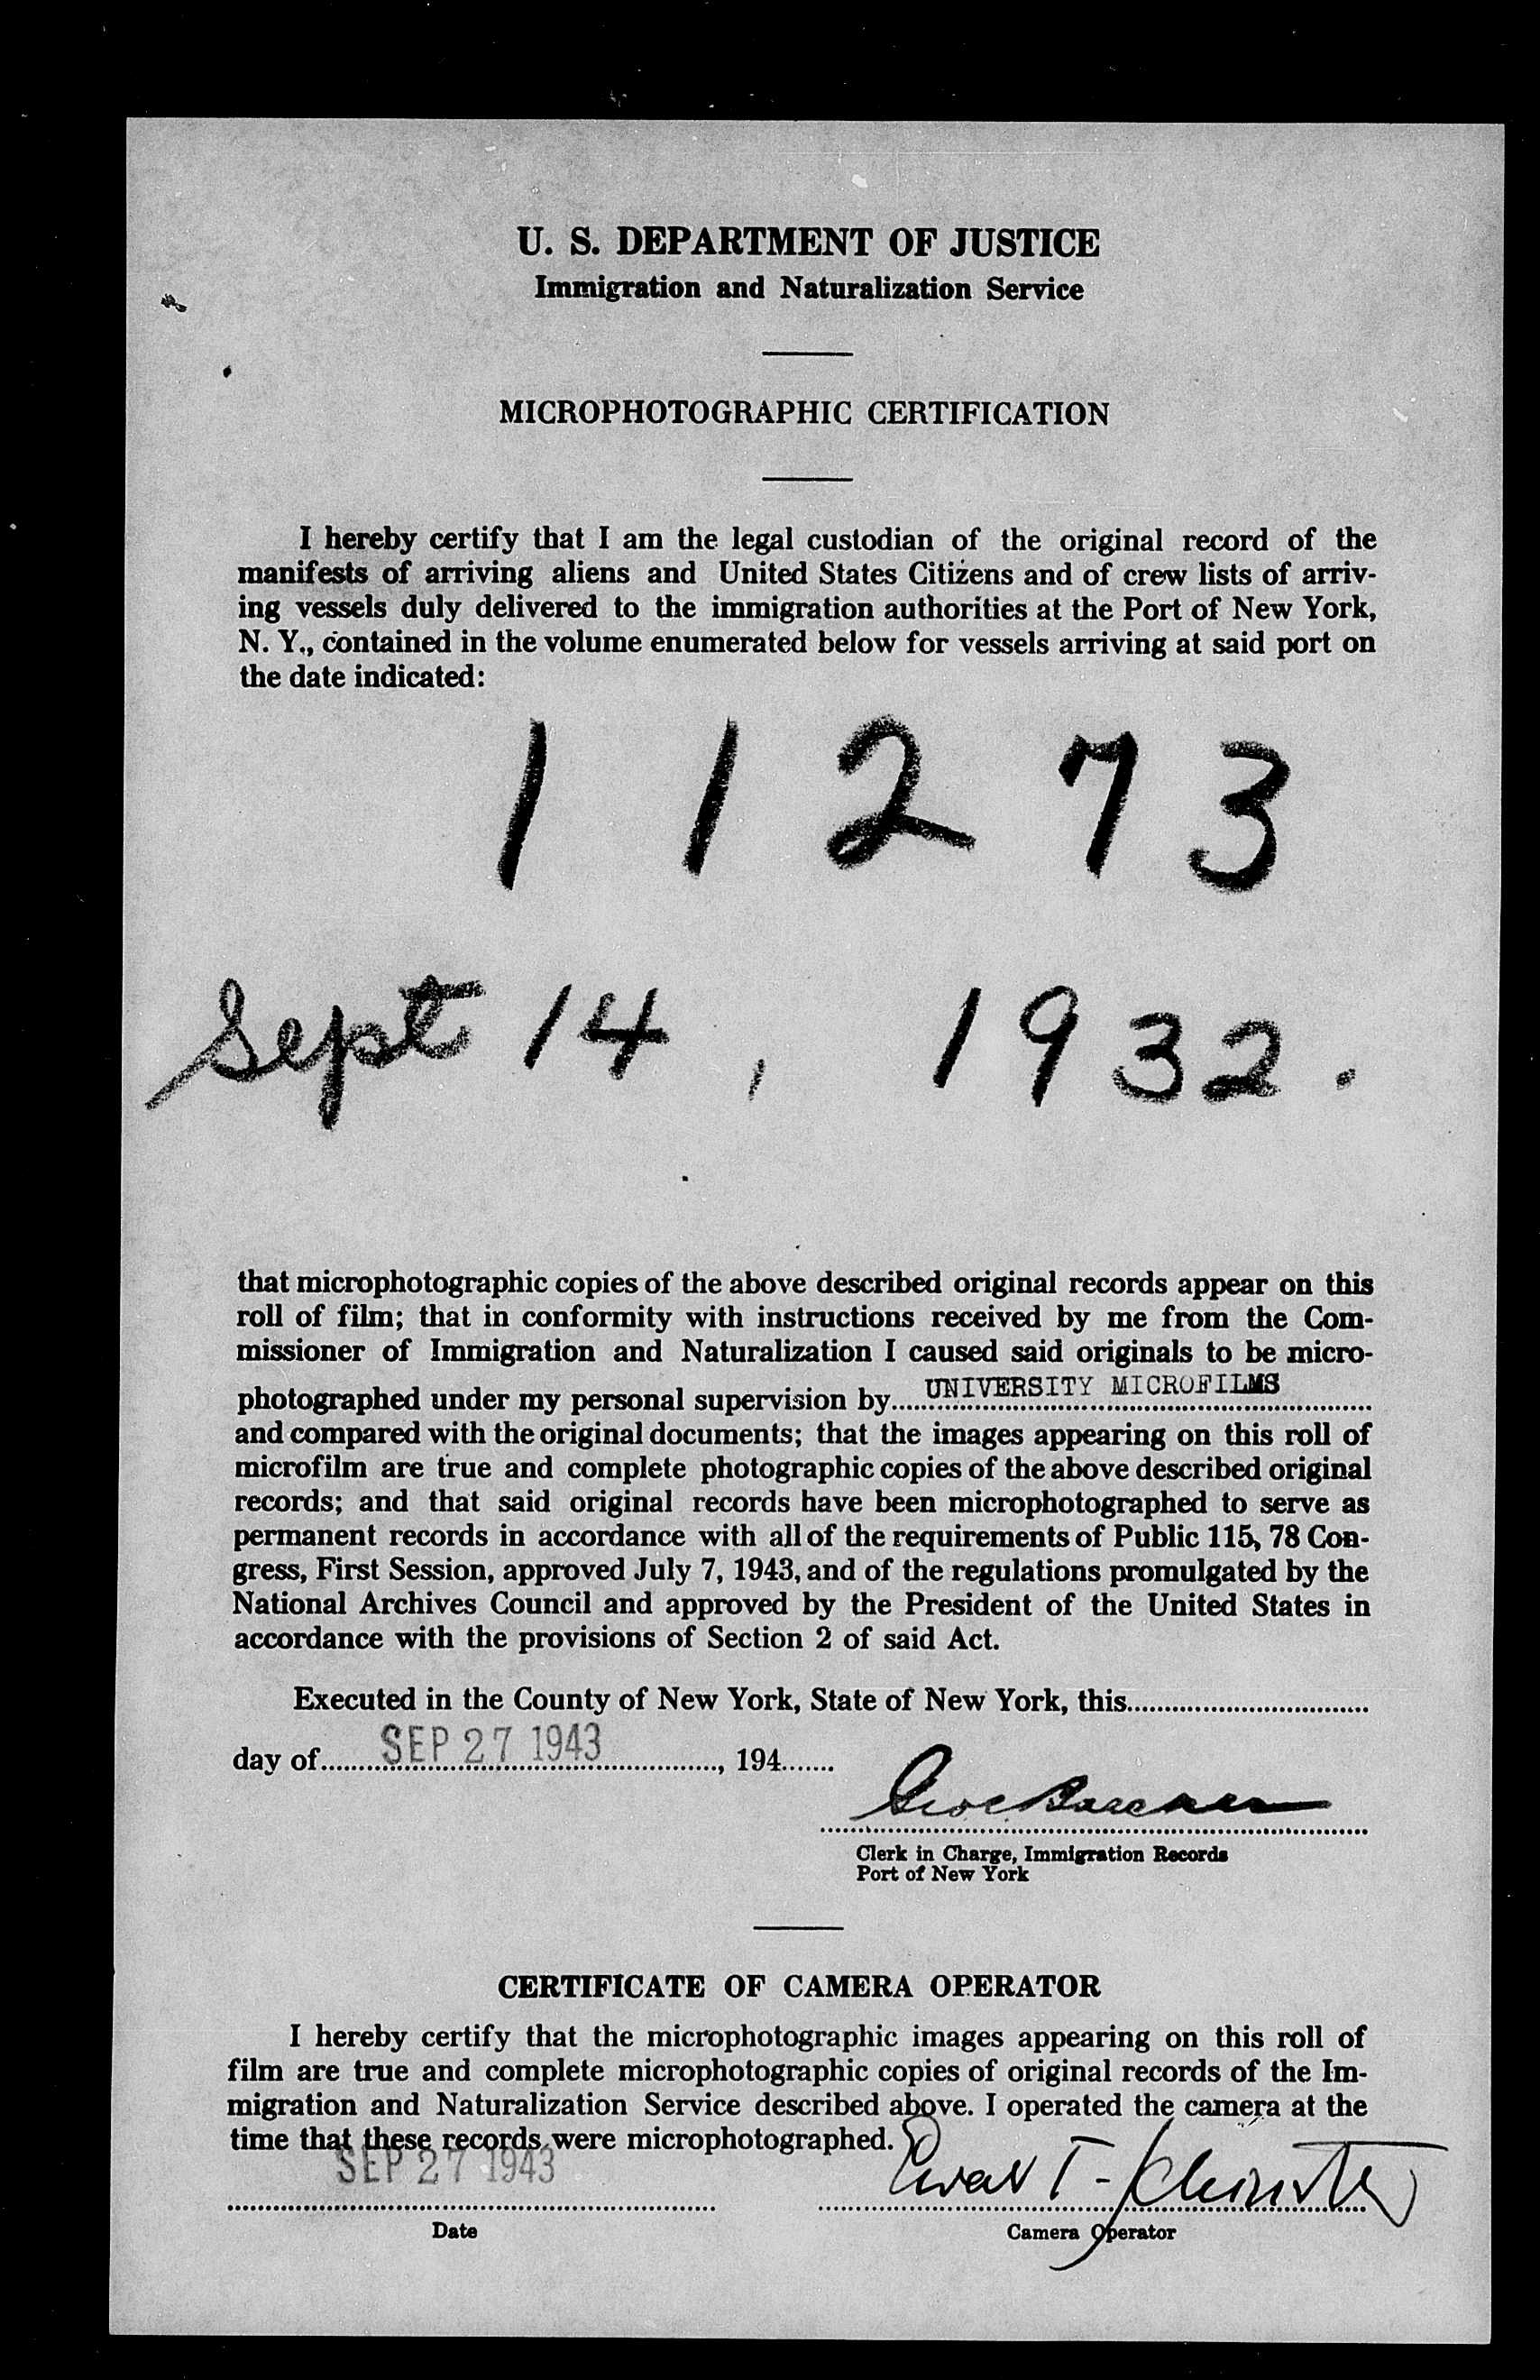 U. S. DEPARTMENT OF JUSTICE
Immigration and Naturalization Service
MICROPHOTOGRAPHIC CERTIFICATION
I hereby certify that I am the legal custodian of the original record of the
manifests of arriving aliens and United States Citizens and of crew lists of arriv-
ing vessels duly delivered to the immigration authorities at the Port of New York,
N. Y., contained in the volume enumerated below for vessels arriving at said port on
the date indicated:
11273
Sept 14, 1932.
that microphotographic copies of the above described original records appear on this
roll of film; that in conformity with instructions received by me from the Com-
missioner of Immigration and Naturalization I caused said originals to be micro-
photographed under my personal supervision by UNIVERSITY MICROFILMS
and compared with the original documents; that the images appearing on this roll of
microfilm are true and complete photographic copies of the above described original
records; and that said original records have been microphotographed to serve as
permanent records in accordance with all of the requirements of Public 115, 78 Con-
gress, First Session, approved July 7, 1943, and of the regulations promulgated by the
National Archives Council and approved by the President of the United States in
accordance with the provisions of Section 2 of said Act.
Executed in the County of New York, State of New York, this
day of SEP 27 1943, 194
Clerk in Charge, Immigration Records
Port of New York
CERTIFICATE OF CAMERA OPERATOR
I hereby certify that the microphotographic images appearing on this roll of
film are true and complete microphotographic copies of original records of the Im-
migration and Naturalization Service described above. I operated the camera at the
time that these records were microphotographed.
SEP 27 1943
Date
Camera Operator